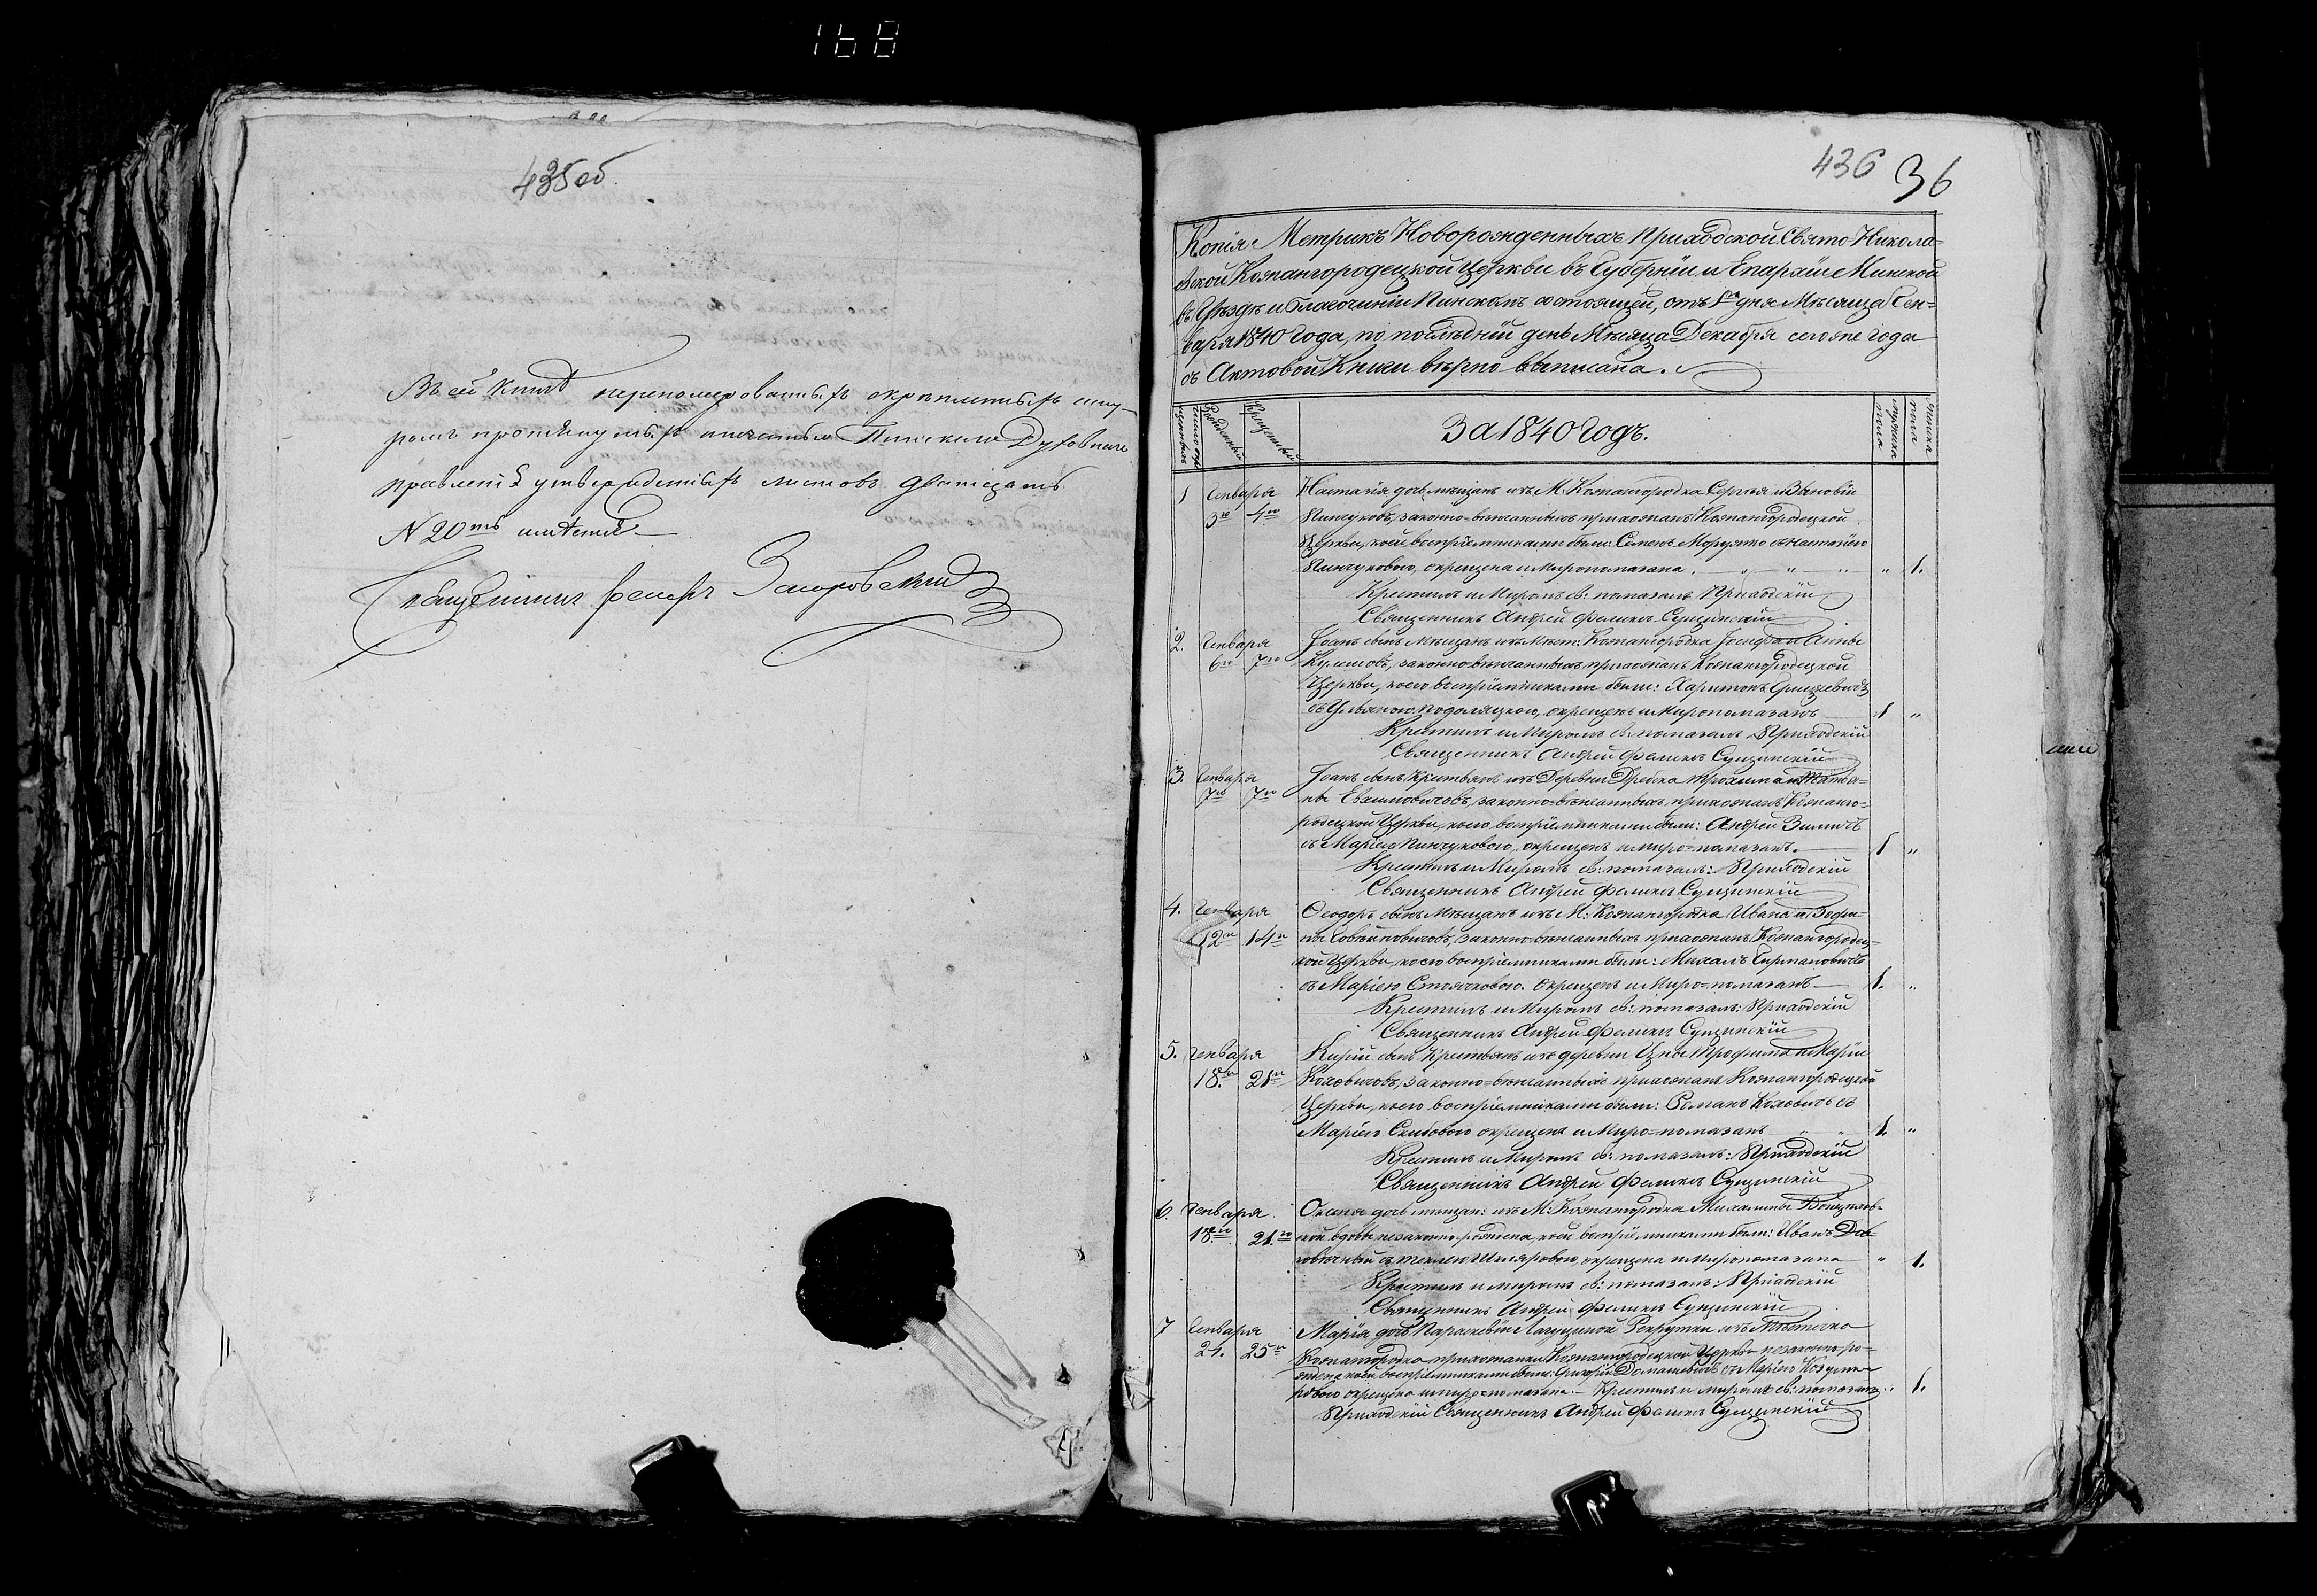 168
435об
Въ сей книгѣ перенумерованныхъ скрѣпленныхъ шну-
ромъ протянутыхъ печатью Пинскаго Духовнаго
правленія утвержденныхъ листовъ двадцать
N 20ть имѣется
Священникъ
436 36
Копія Метрикъ Новорожденныхъ Приходской Свято-Никола-
евской Кожангородецкой Церкви въ Губерніи и Епархіи Минской
въ Уѣздѣ и Благочиніи Пинскомъ состоящей, отъ 1го дня Мѣсяца Ген-
варя 1840 года, по послѣдній день Мѣсяца Декабря сегоже года
съ Актовой Книги вѣрно выписана.
За 1840 Годъ.
1 Генваря Настасія дочь мѣщанъ изъ М: Кожангородка Сергѣя и Зѣновіи
3го 4го Пинчуковъ, законно-вѣнчанныхъ прихожанъ Кожангородецкой
Церкви, коей воспріемниками были: Семенъ Моружко съ Настасіею
Пинчуковою, окрещена и Миропомазана. " " " " 1.
Крестилъ и Мѵромъ св: помазалъ Приходскій
Священникъ Андрей Фаликъ Сущинскій
2. Генваря Іоанъ сынъ Мѣщанъ изъ Мѣст: Кожангородка Іосифа и Анны
6го 7го Кулешовъ, законно вѣнчанныхъ прихожанъ Кожангородецкой
Церкви, коего воспріемниками были: Харитонъ Грицкевичъ
съ Ульяною Подоляцкою, окрещенъ и Миропомазанъ 1 "
Крестилъ и Мѵромъ св: помазалъ Приходскій
Священникъ Андрей Фаликъ Сущинскій
3. Генваря Іоанъ сынъ Крестьянъ изъ Деревни Дребска Трохима и Татья-
7го 7го ны Евхимовичовъ, законно-вѣнчанныхъ прихожанъ Кожанго-
родецкой Церкви, коего воспріемниками были: Андрей Зиличъ
съ Маріею Пинчуковою, окрещенъ и миро-помазанъ. 1 "
Крестилъ и Мѵромъ св: помазалъ: Приходскій
Священникъ Андрей Фаликъ Сущинскій
4. Генваря Ѳеодоръ сынъ Мѣщанъ изъ М: Кожангородка Ивана и
12го 14го законно-вѣнчанныхъ прихожанъ Кожангородец-
кой Церкви, коего воспріемниками были: Михалъ
съ Маріею окрещенъ и Миро-помазанъ 1. "
Крестилъ и Мѵромъ св: помазалъ: Приходскій
Священникъ Андрей Фаликъ Сущинскій
5. Генваря Кирій сынъ Крестьянъ изъ деревни Цны Трофима и Маріи
18го 21го Коховичовъ, законно-вѣнчанныхъ прихожанъ Кожангородецкой
Церкви, коего воспріемниками были: Романъ Коховичъ съ
Маріею окрещенъ и Миро-помазанъ " " 1. "
Крестилъ и Мѵромъ св: помазалъ: Приходскій
Священникъ Андрей Фаликъ Сущинскій
6. Генваря Оксена дочь мѣщан: изъ М: Кожангородка Михалины
18го 21го вдовы незаконно-рожденна, коей воспріемниками были: Иванъ
съ Теклею окрещена и миропомазана " 1.
Крестилъ и мѵромъ св: помазалъ: Приходскій
Священникъ Андрей Фаликъ Сущинскій
7 Генваря Марія дочь Параскевіи Рекрутки изъ Мѣстечка
21. 25го Кожангородка прихожанки Кожангородецкой Церкви незаконно-ро-
жденна коей воспріемниками были: Григорій съ Маріею
окрещена и миро-помазана. - Крестилъ и мѵромъ св: помазалъ " 1.
Приходскій Священникъ Андрей Фаликъ Сущинскій